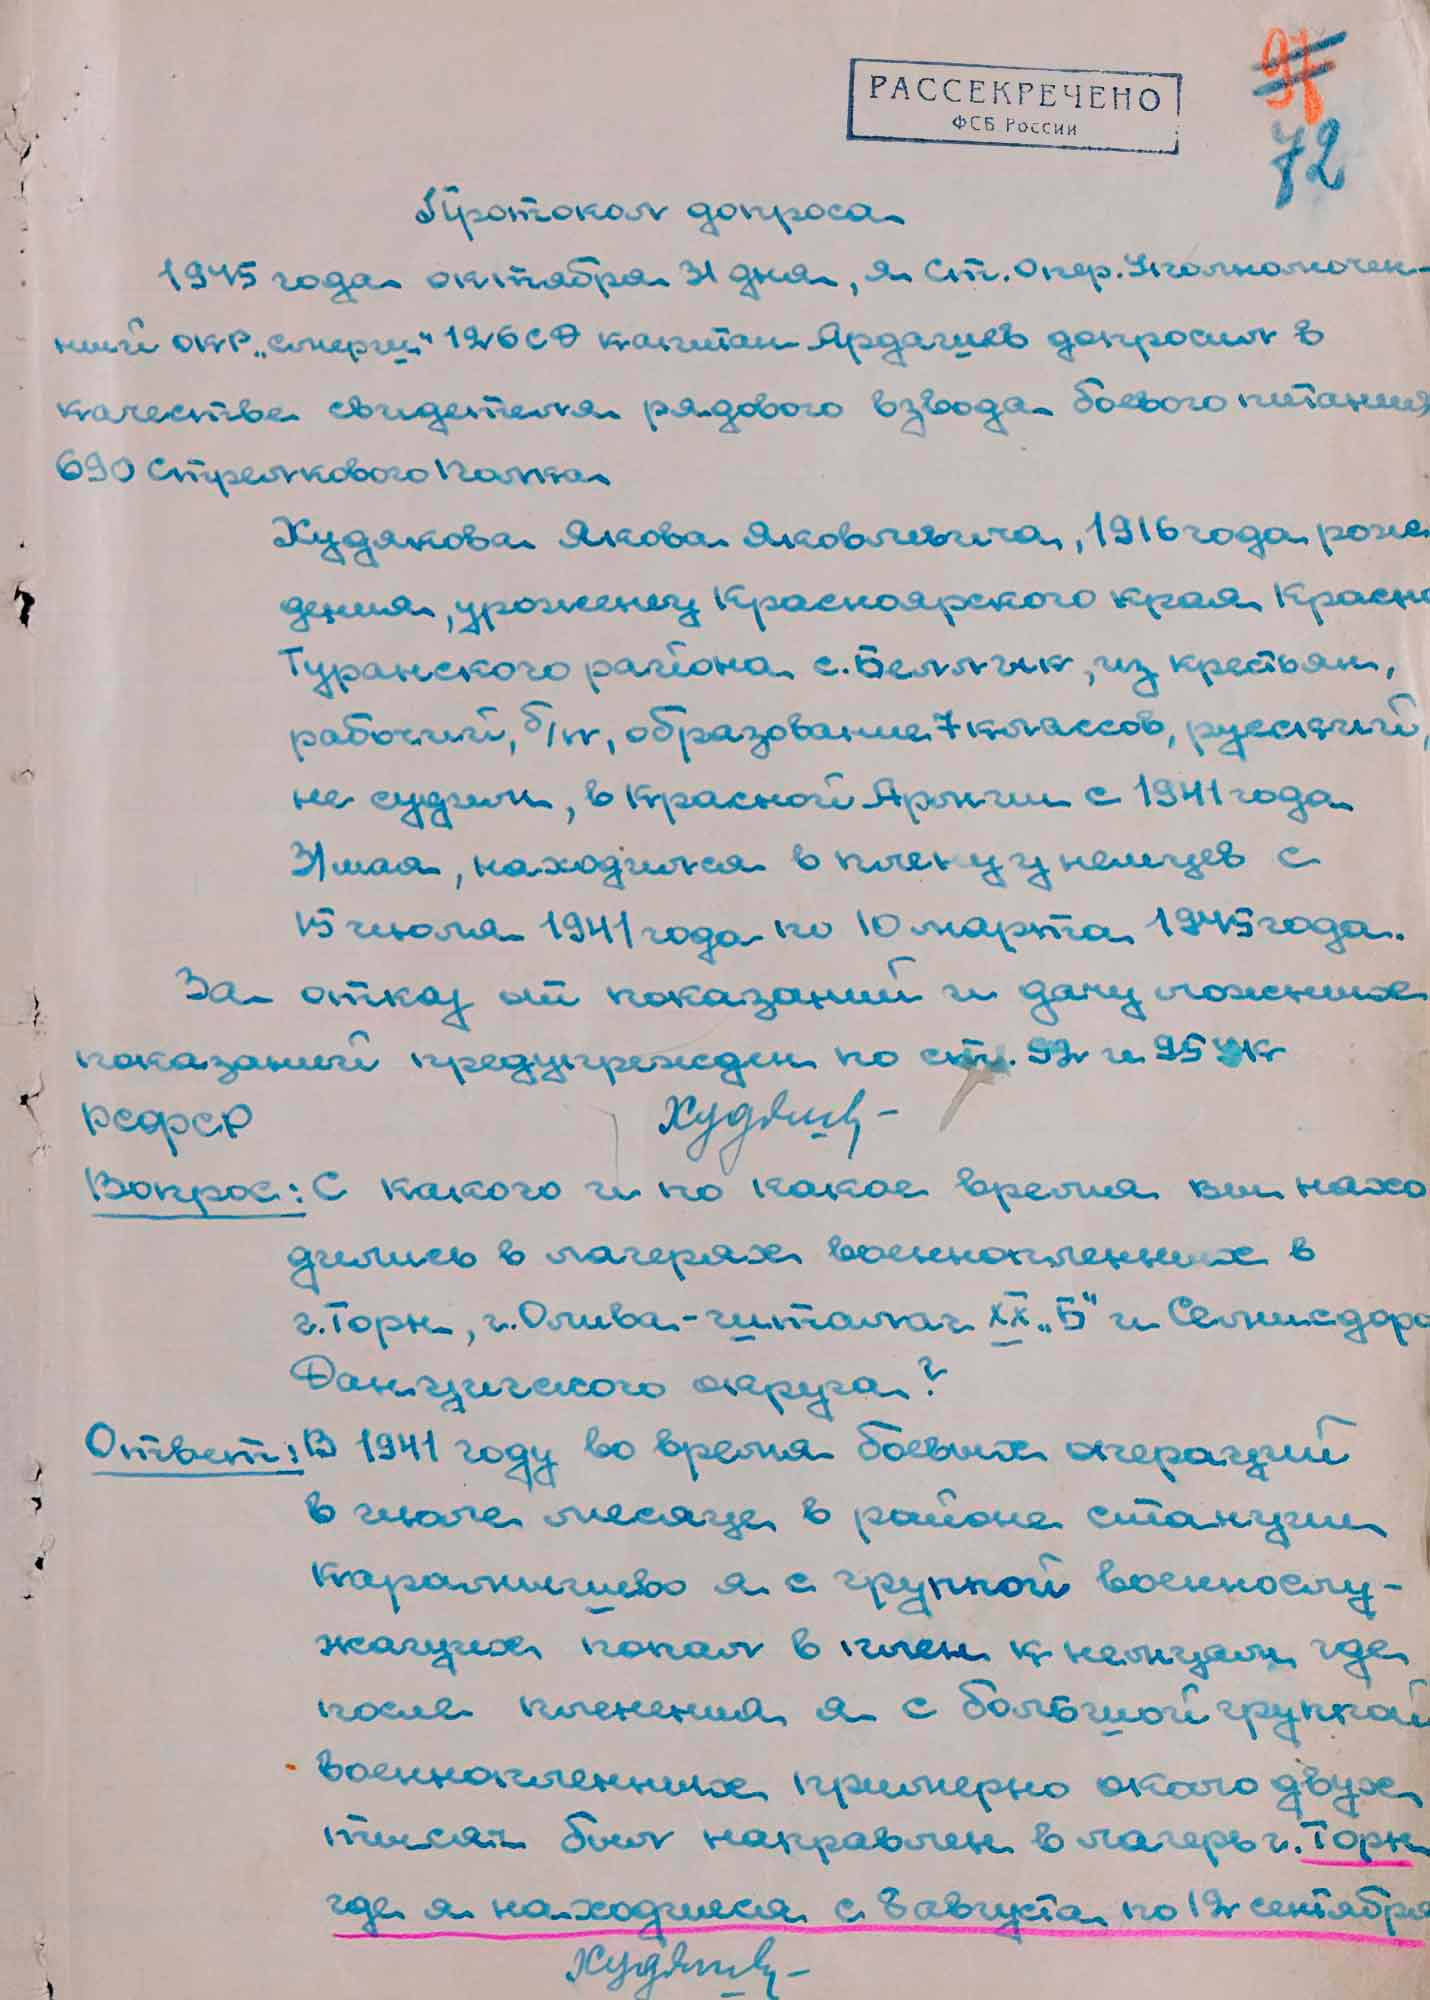 РАССЕКРЕЧЕНО
ФСБ России
97
72
Протокол допроса
1945 года октября 31 дня, я Ст. Опер. Уполномочен-
ный ОКР „Смерш" 126 СД капитан Ардашев допросил в
качестве свидетеля рядового взвода боевого питания
690 Стрелкового Полка
Худякова Якова Яковлевича, 1916 года рож
дения, уроженец Красноярского края Красно
Туранского района с. Беллык, из крестьян,
рабочий, б/п, образование 7 классов, русский,
не судим, в Красной Армии с 1941 года
31 мая, находился в плену у немцев с
15 июля 1941 года по 10 марта 1945 года.
За отказ от показаний и дачу ложных
показаний предупрежден по ст. 92 и 95 УК
РСФСР
Вопрос: С какого и по какое время вы нахо
дились в лагерях военнопленных в
г. Торн, г. Олива-шталаг XX „Б" и
Данцигского округа?
Ответ: В 1941 году во время боевых операций
в июле месяце в районе станции
Карамышево я с группой военнослу-
жащих попал в плен к немцам, где
после пленения я с большой группой
военнопленных примерно около двух
тысяч был направлен в лагерь г. Торн
где я находился с 8 августа по 12 сентября